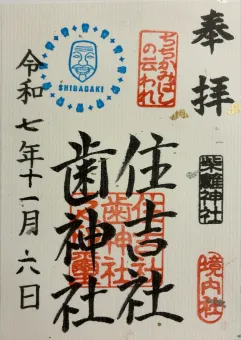 奉拝
柴籬神社
境内社
ちぢかみはし
の云われ
SHIBAGAKI
住吉社
歯神社
住吉社
歯神社
令和七年十一月六日